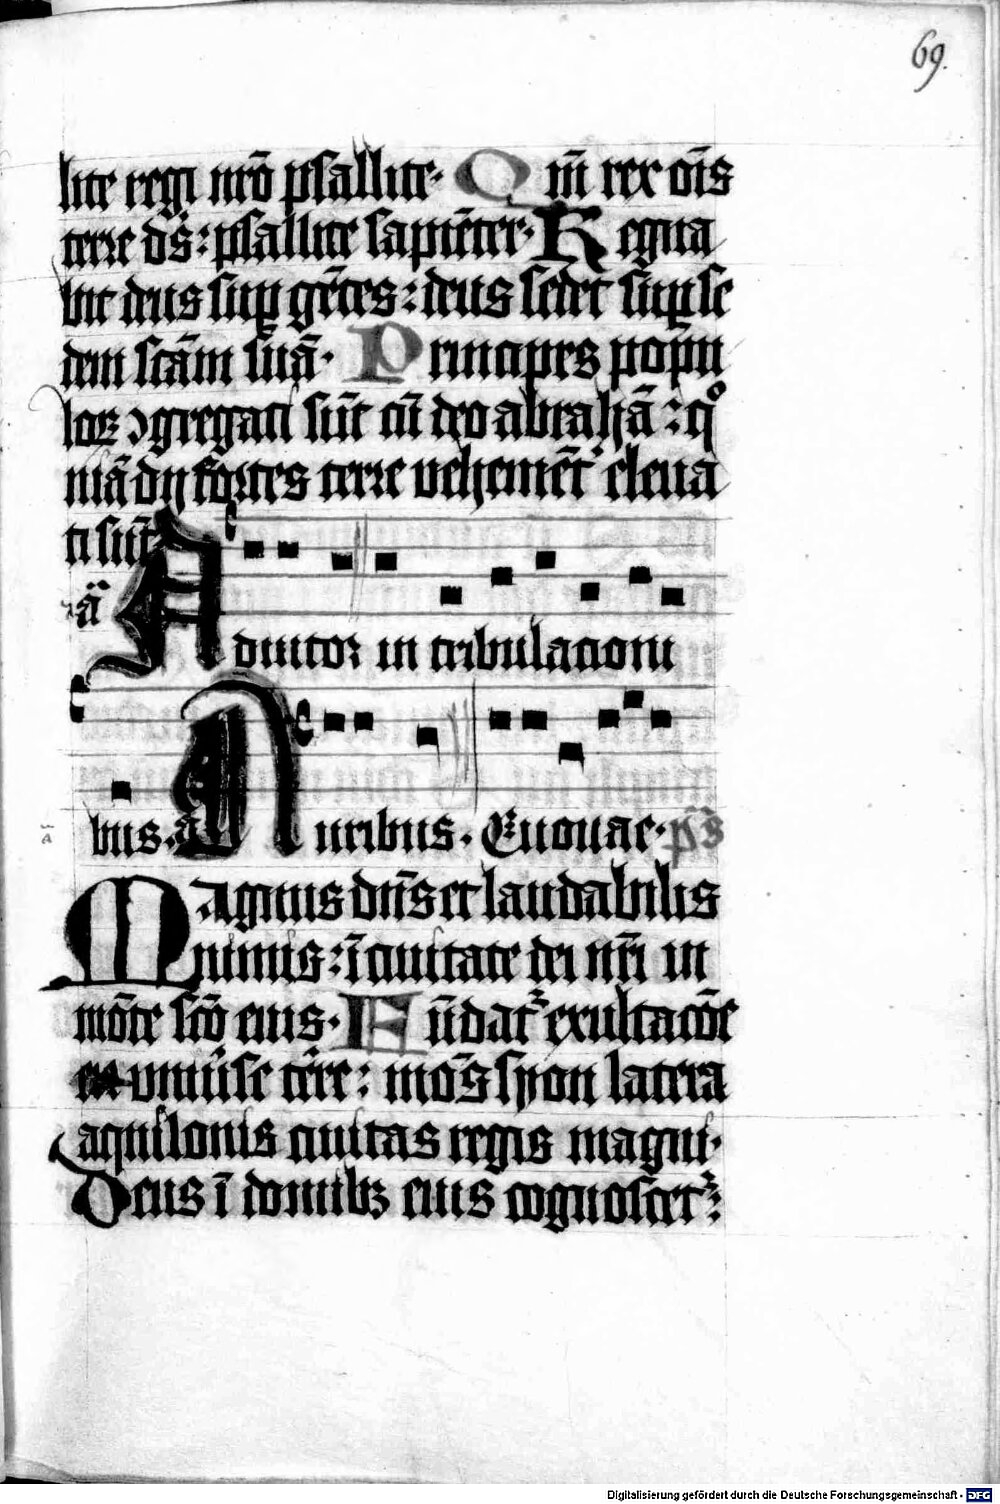 69.
lite regi nr̄o psallite· Qm̄ rex om̄s
terre ds̄: psallite sapiēter· Regna
bit deus sup gētes: deus sedet sup se
dem scām suā· Principes popu
loꝝ ꝯgregati sūt cū deo abrahā: qͦ
niā dij fortes terre vehemēt͛ eleua
ti sūt
ā
Adiutor in tribulacioni
bus. a Auribus. Euouae· ps̄
MAgnus dn̄s et laudabilis
nimis: ī ciuitate dei nr̄i in
mōte scō eius· Fūdat᷑ exultacōe
vniu͛se terre: mōs syon latera
aquilonis ciuitas regis magni·
Deus ī domibꝫ eius cognoscet᷑:
Digitalisierung gefördert durch die Deutsche Forschungsgemeinschaft - DFG